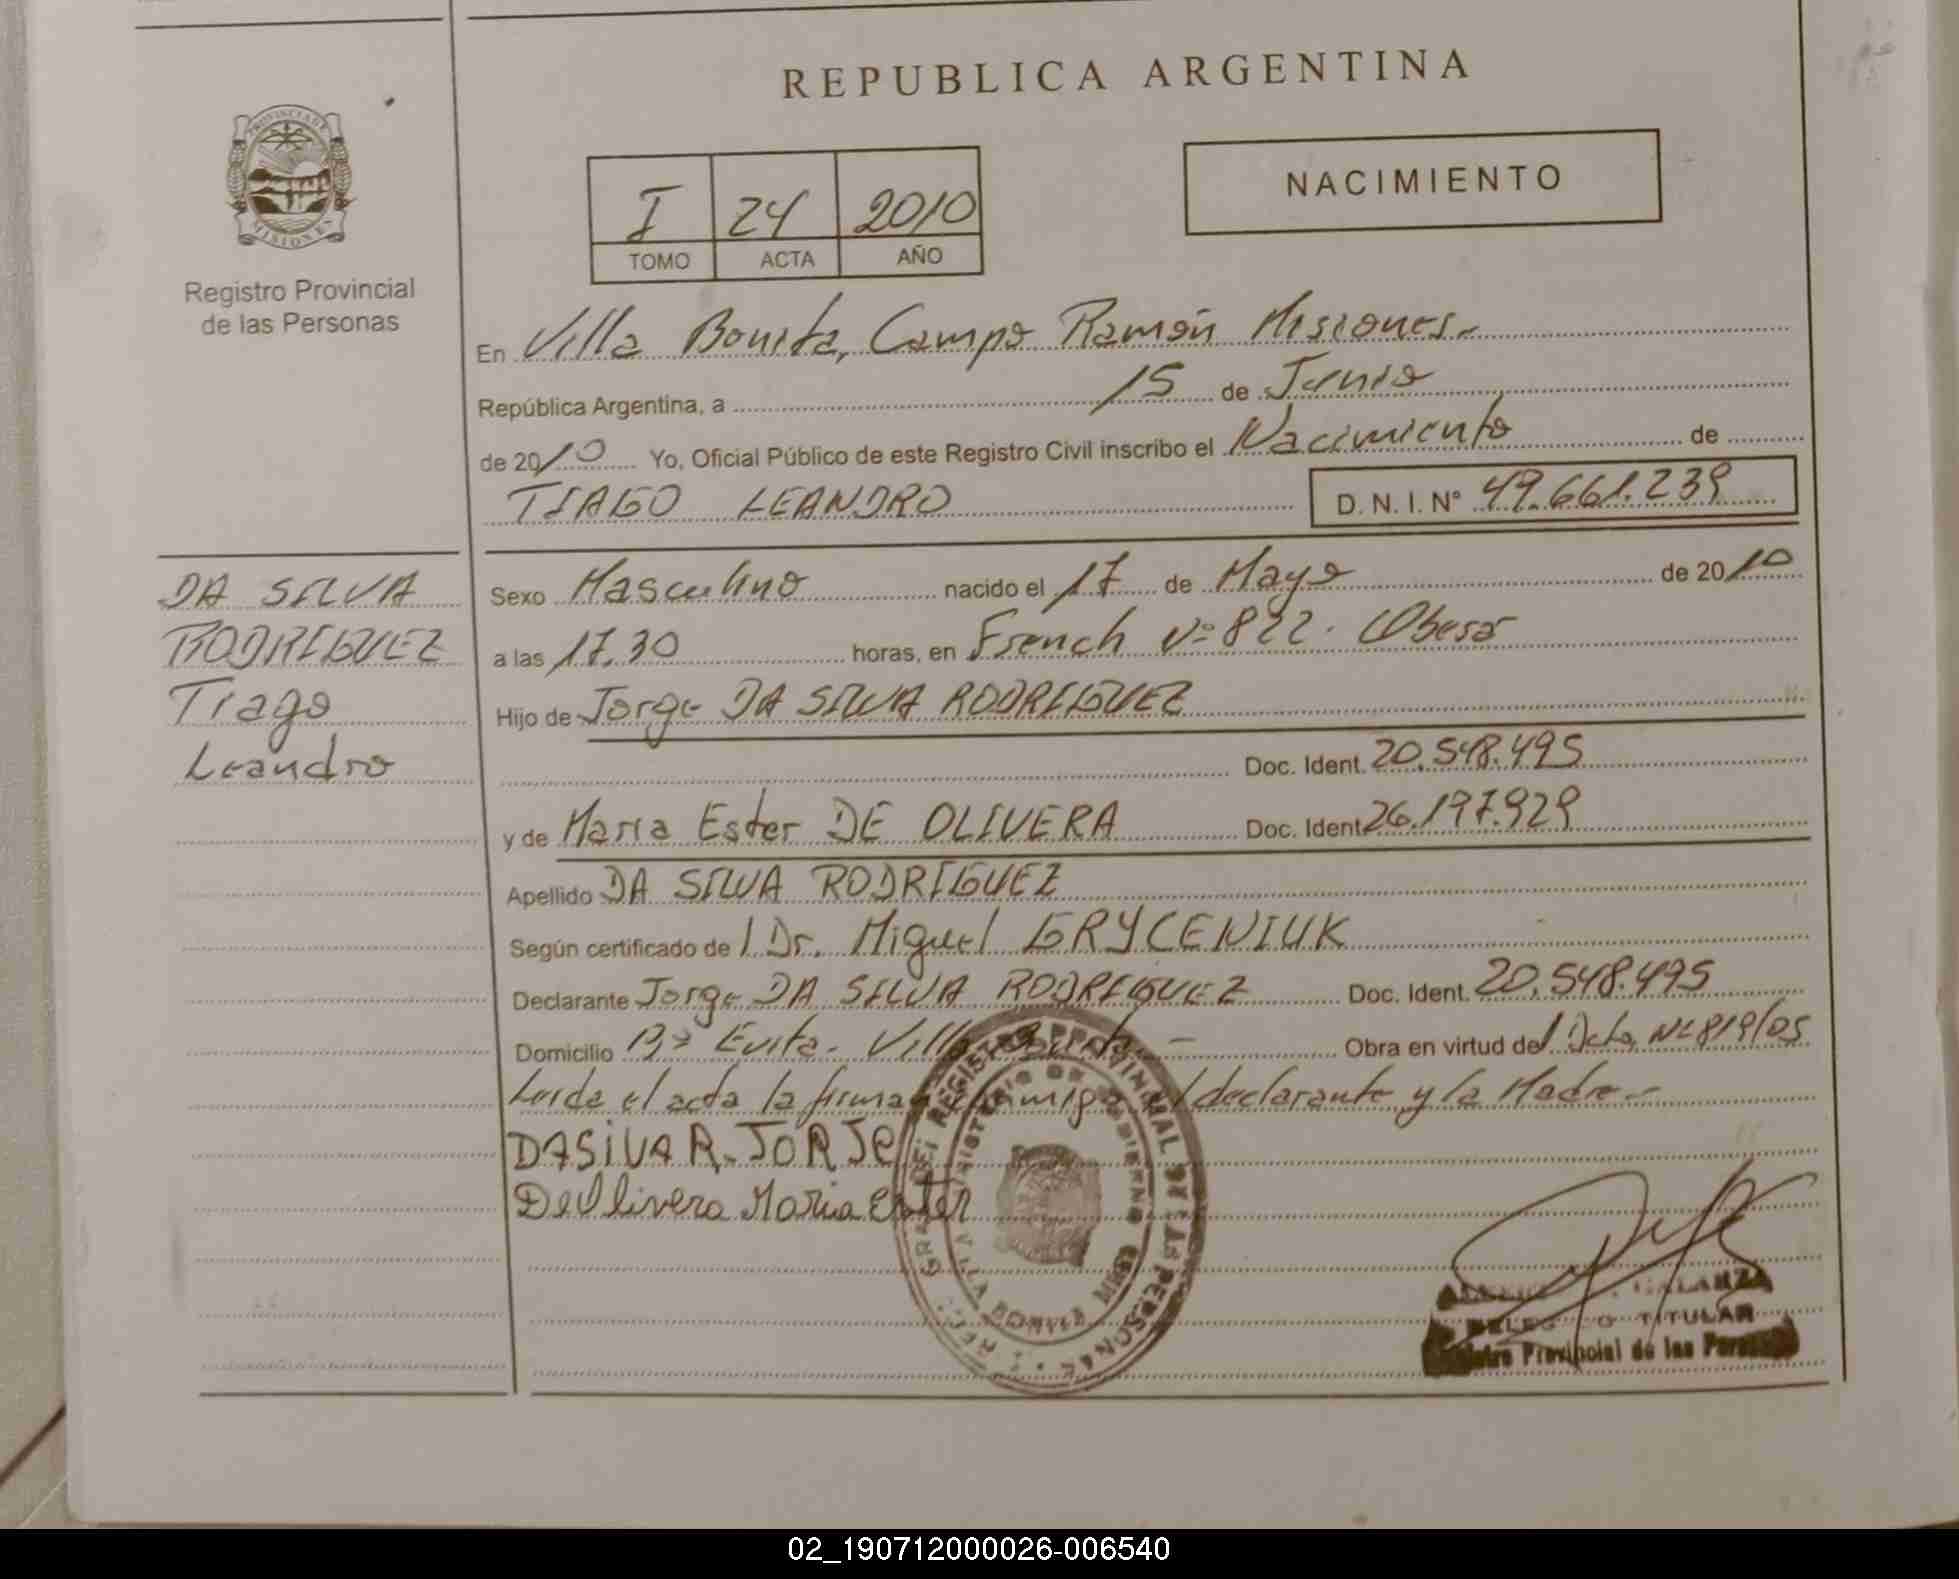 REPUBLICA ARGENTINA
PROVINCIA DE MISIONES
Registro Provincial
de las Personas
I 24 2010
TOMO ACTA AÑO
NACIMIENTO
En Villa Bonita, Campo Ramón Misiones.-
República Argentina, a 15 de Junio
de 2010 Yo, Oficial Público de este Registro Civil inscribo el Nacimiento de
TIAGO LEANDRO D. N. I. N° 49.661.239
DA SILVA
RODRIGUEZ
Tiago
Leandro
Sexo Masculino nacido el 17 de Mayo de 2010
a las 17.30 horas, en French Nº 822. Obera
Hijo de Jorge DA SILVA RODRIGUEZ
Doc. Ident. 20.548.495
y de Maria Ester DE OLIVERA Doc. Ident 26.197.929
Apellido DA SILVA RODRIGUEZ
Según certificado de l Dr. Miguel GRYCENIUK
Declarante Jorge DA SILVA RODRIGUEZ Doc. Ident. 20.548.495
Domicilio Bº Evita. Villa Bonita - Obra en virtud del Dcto Nº 819/05
Leida el acta la firman conmigo el declarante y la Madre.-
DASiVA R. JORJE
De Olivera Maria Ester
REGISTRO PROVINCIAL DE LAS PERSONAS
MINISTERIO DE GOBIERNO
VILLA BONITA
GALARZA
DELEGADO TITULAR
Registro Provincial de las Personas
02_190712000026-006540